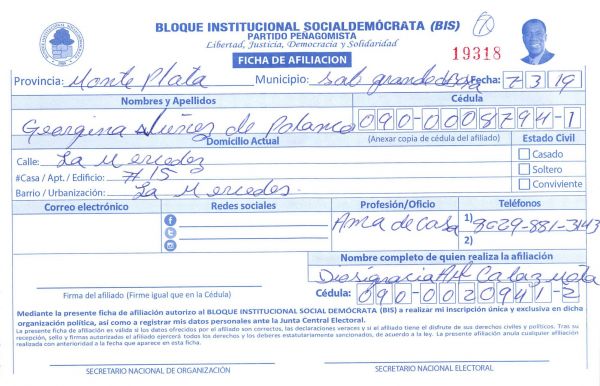 BLOQUE INSTITUCIONAL SOCIALDEMÓCRATA (BIS)
PARTIDO PEÑAGOMISTA
Libertad, Justicia, Democracia y Solidaridad
FICHA DE AFILIACION
19318
Provincia: Monte Plata Municipio: Sab grande de Boya Fecha: 7-3-19
Nombres y Apellidos Cédula
Georgina Nuñez de Polanco 090-0008794-1
Domicilio Actual (Anexar copia de cédula del afiliado) Estado Civil
Calle: La Mercedes
Casado
#Casa / Apt. / Edificio: #15
Soltero
Barrio / Urbanización: La Mercedes.
Conviviente
Correo electrónico Redes sociales Profesión/Oficio Teléfonos
Ama de Casa 1) 8029-881-3143
2)
Nombre completo de quien realiza la afiliación
Firma del afiliado (Firme igual que en la Cédula)
Cédula: 090-0020941-2
Mediante la presente ficha de afiliación autorizo al BLOQUE INSTITUCIONAL SOCIAL DEMÓCRATA (BIS) a realizar mi inscripción única y exclusiva en dicha
organización política, así como a registrar mis datos personales ante la Junta Central Electoral.
La presente ficha de afiliación es válida si los datos ofrecidos por el afiliado son correctos, las declaraciones veraces y si el afiliado tiene el disfrute de sus derechos civiles y políticos. Tras su
recepción, sello y firmas autorizadas el afiliado ejercerá todos los derechos y los deberes estatutariamente sancionados, de acuerdo a la ley. La presente afiliación anula cualquier afiliación
realizada con anterioridad a la fecha que aparece en esta ficha.
SECRETARIO NACIONAL DE ORGANIZACIÓN SECRETARIO NACIONAL ELECTORAL